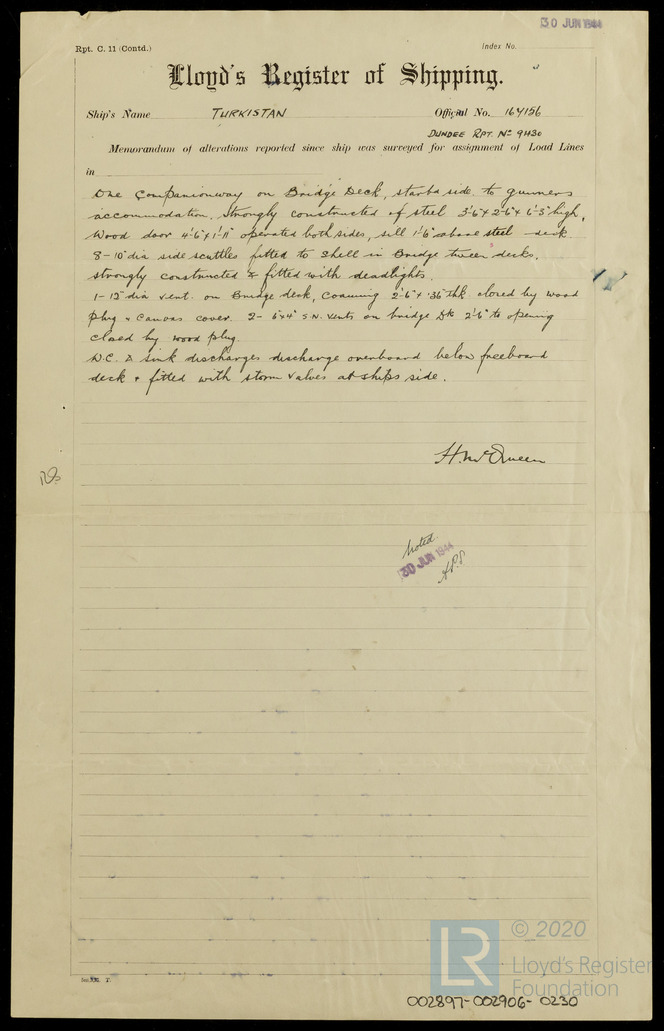 30 JUN 1944
Rpt. C. 11 (Contd.)
Index No.
Lloyd's Register of Shipping.
Ship's Name TURKISTAN Official No. 164156
DUNDEE RPT. No 91430
Memorandum of alterations reported since ship was surveyed for assignment of Load Lines
in
One Companionway on Bridge Deck, starbd side to gunners
accommodation, strongly constructed of steel 3'-6" x 2'-6" x 6'-3" high,
Wood door 4'-6" x 1'-11" operated both sides, sill 1'-6" above steel deck
8 - 10" dia side scuttles fitted to shell in Bridge tween decks,
strongly constructed & fitted with deadlights.
1 - 12" dia vent. on Bridge deck, Coaming 2'-6" x .36" thk closed by wood
plug & Canvas cover. 2 - 6" x 4" S.N. vents on bridge Dk 2'-6" to opening
closed by wood plug.
W.C. & sink discharges discharge overboard below freeboard
deck & fitted with storm valves at ships side.
H. McQueen
Noted
30 JUN 1944
© 2020
LR
Lloyd's Register
Foundation
002897-002906-0230